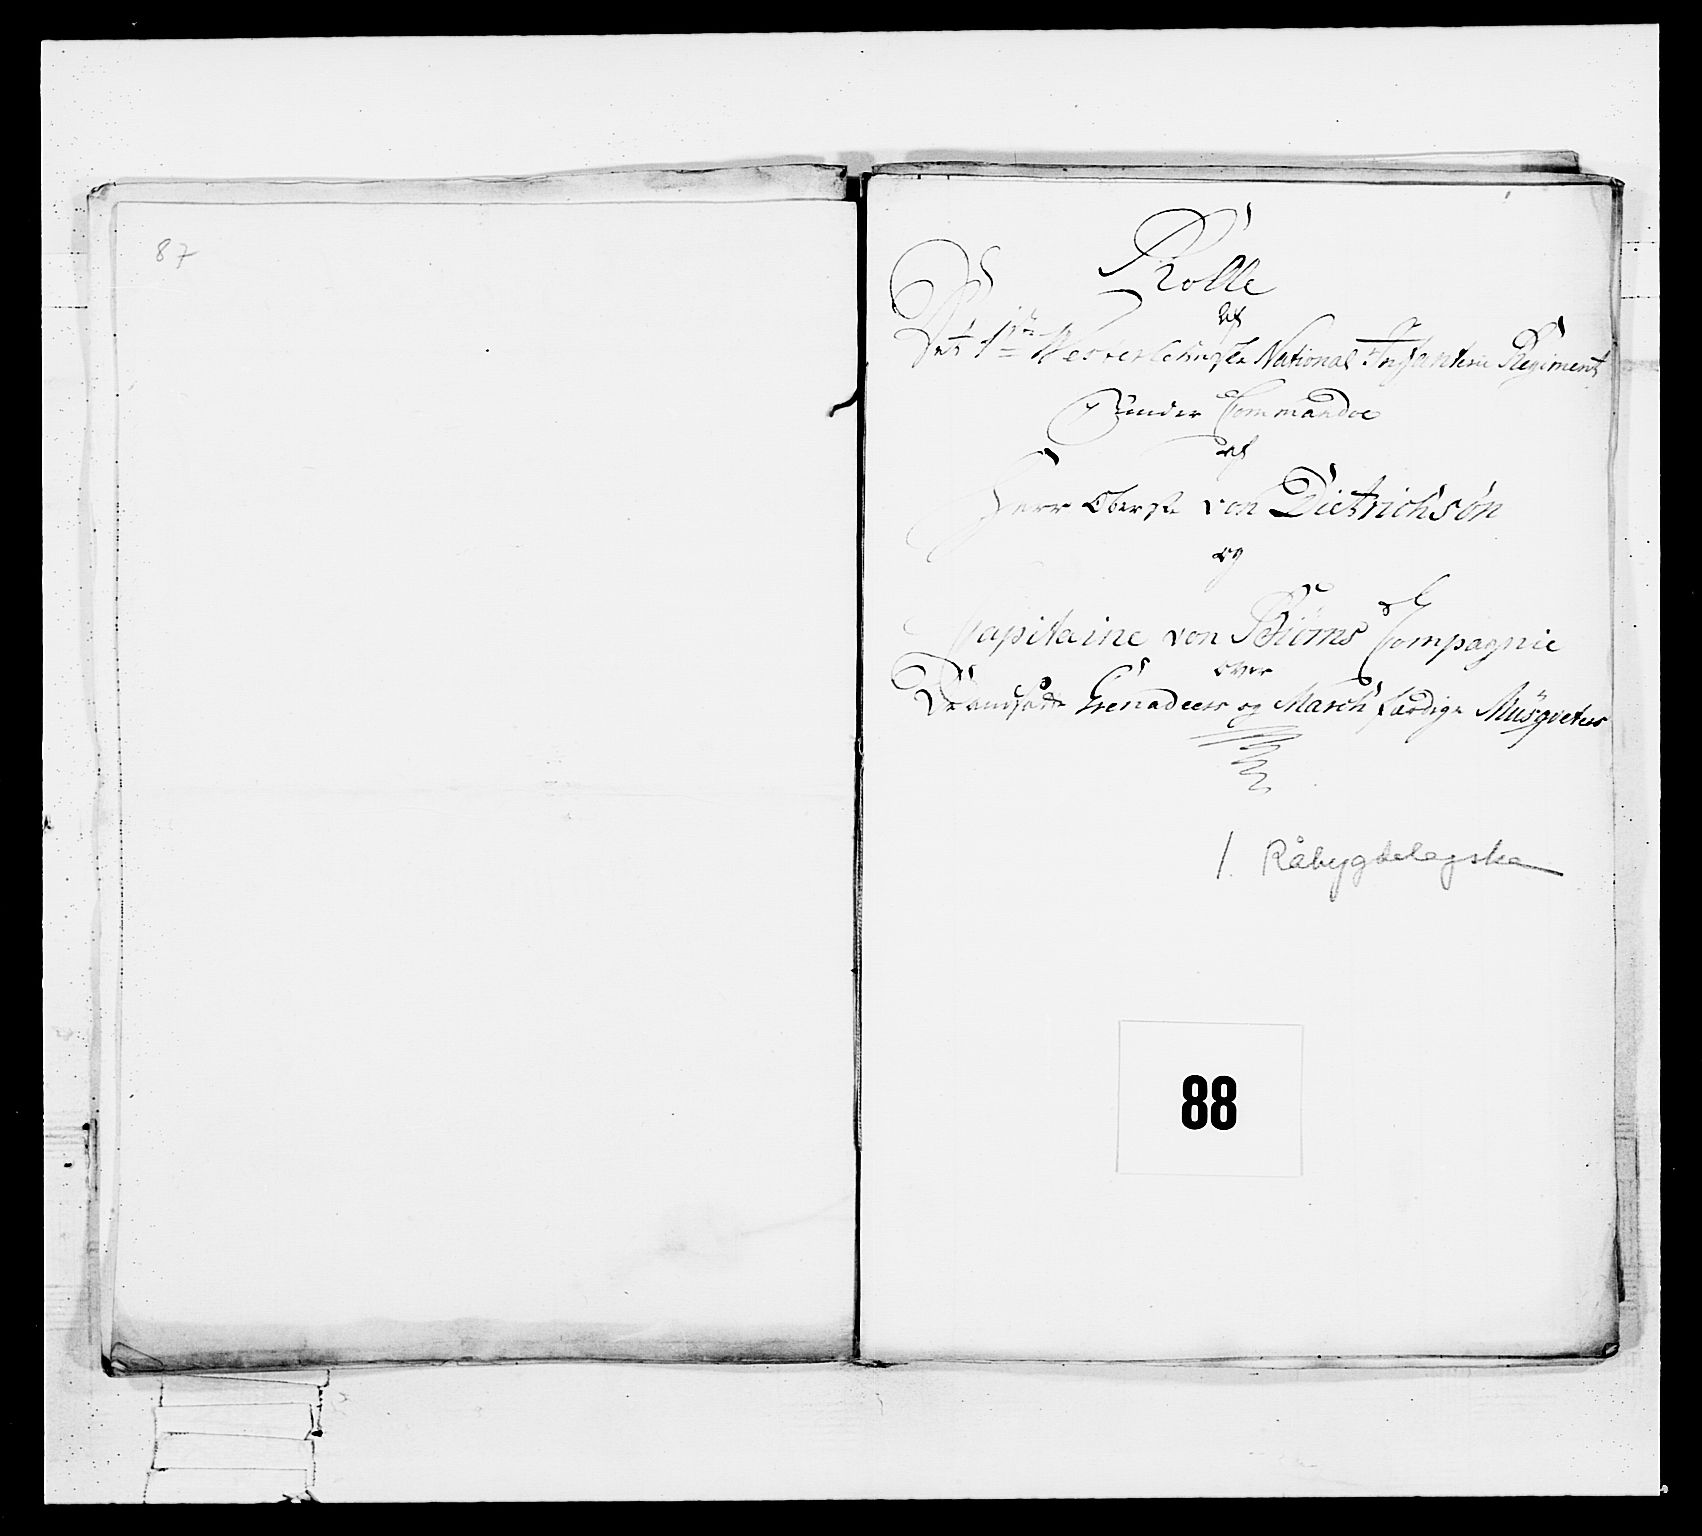 87
Rolle
af
Det 1ste Westerlehnske National Infanterie Regiment
under Commandoe
af
Herr Oberste von Dietrichsön
og
Capitaine von Biörns Compagnie
over
Grenadeers og March færdige Müsqveteers
1. Råbygdelagske
88